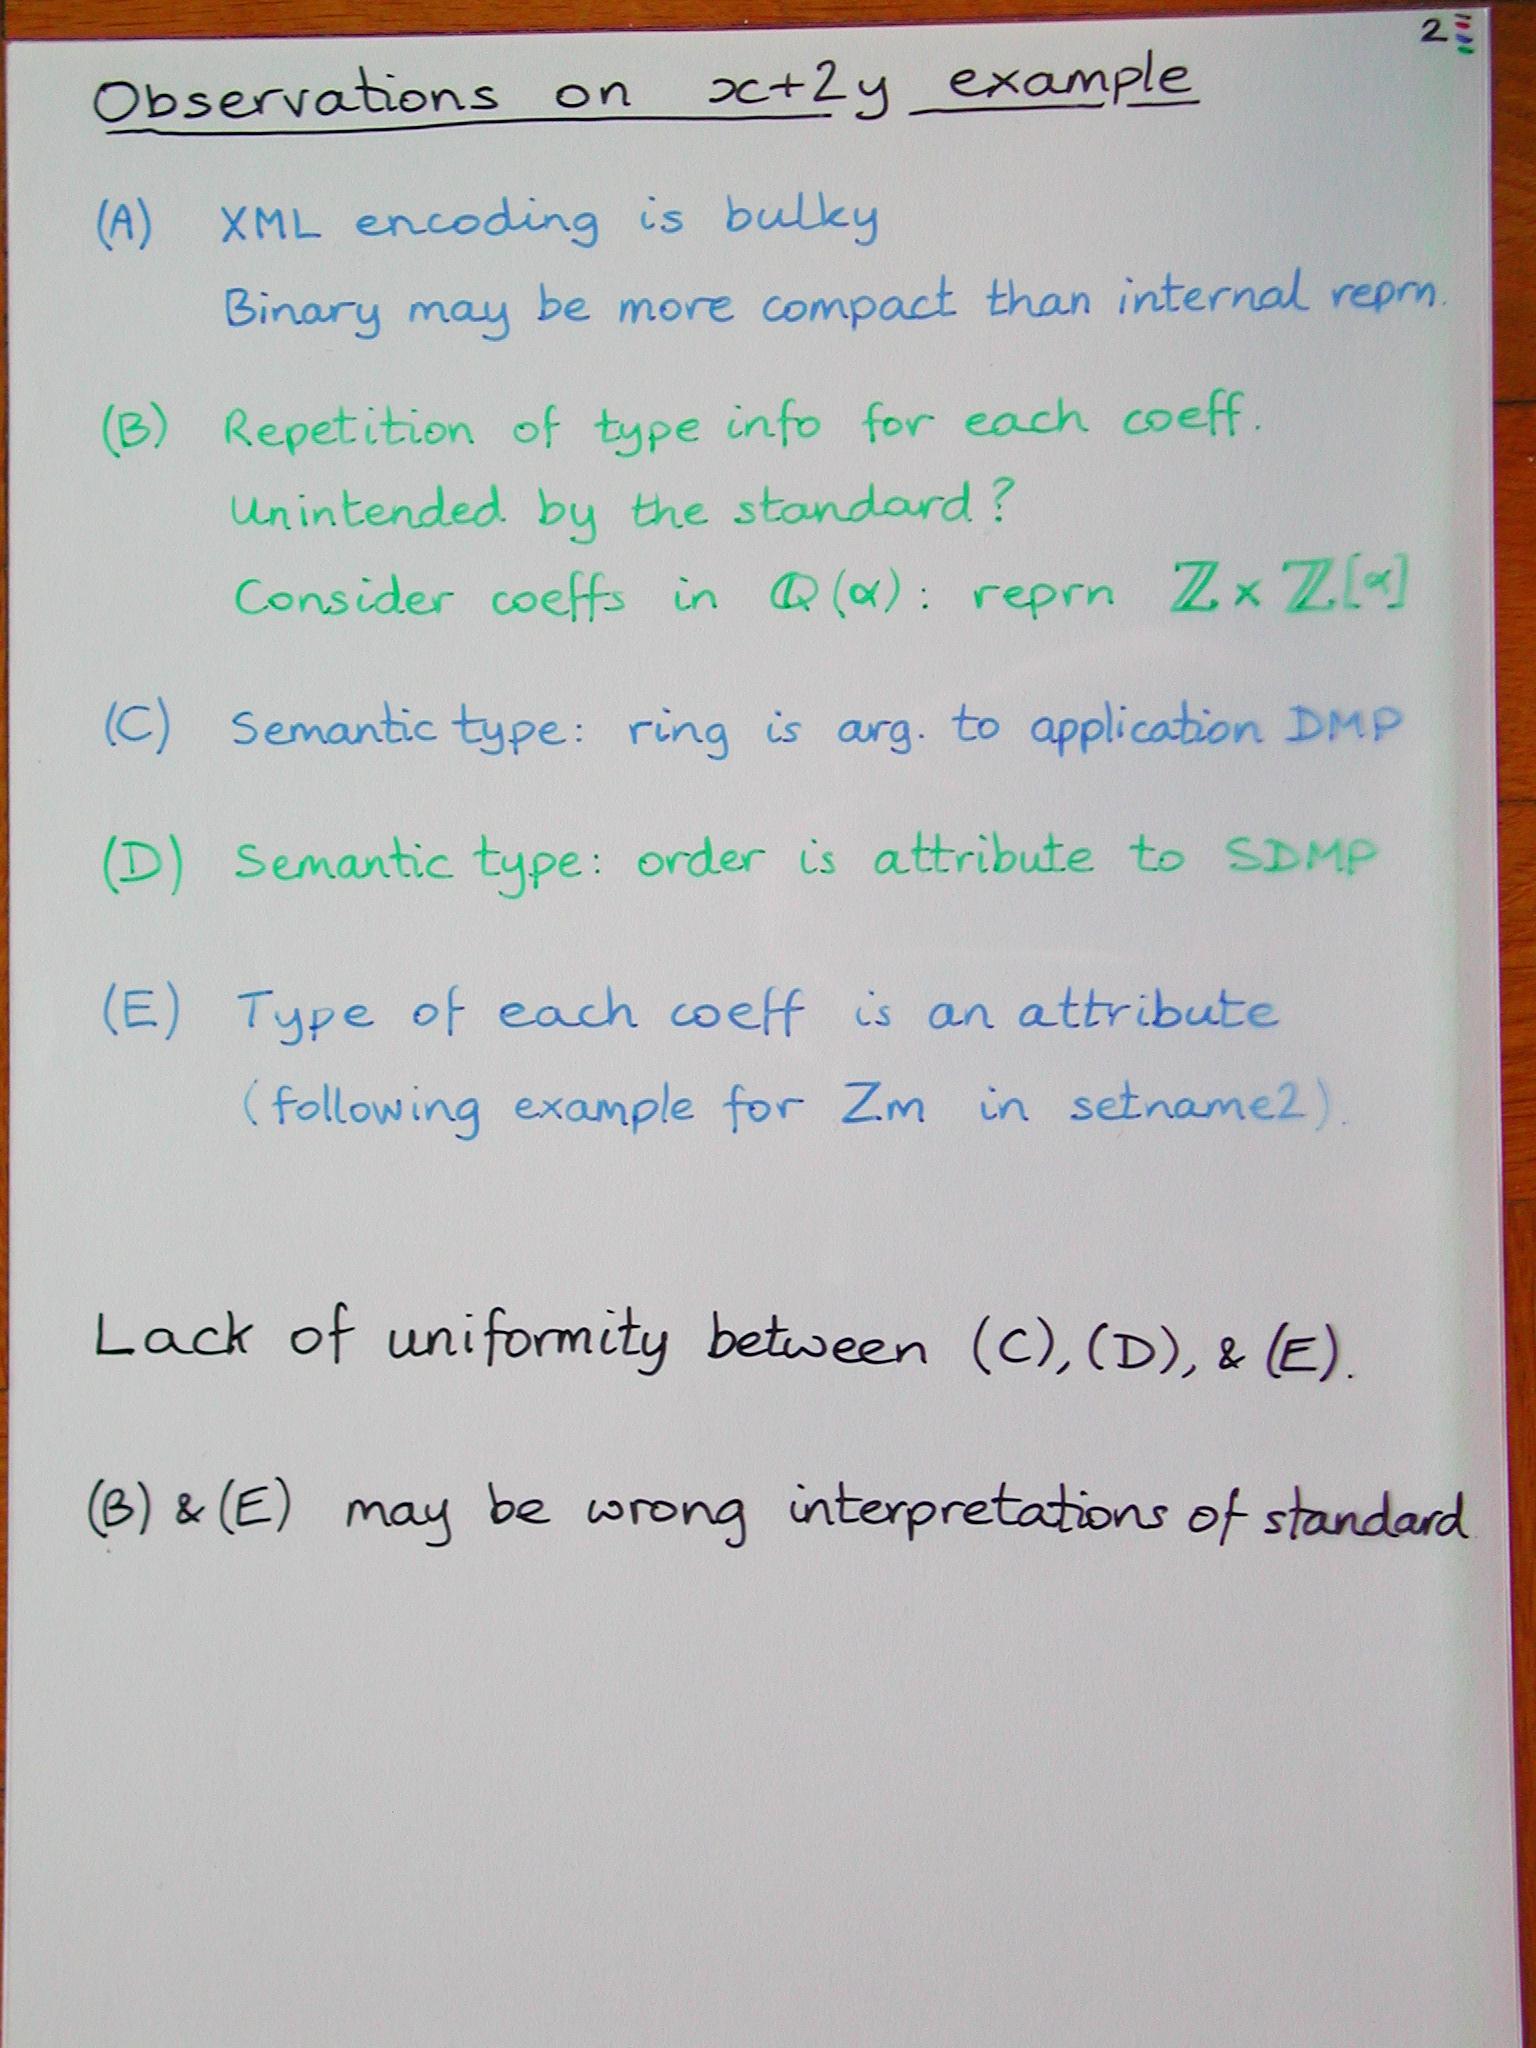 2
Observations on x+2y example
(A) XML encoding is bulky
Binary may be more compact than internal reprn.
(B) Repetition of type info for each coeff.
Unintended by the standard?
Consider coeffs in ℚ(α): reprn ℤ×ℤ[α]
(C) Semantic type: ring is arg. to application DMP
(D) Semantic type: order is attribute to SDMP
(E) Type of each coeff is an attribute
(following example for Zm in setname2).
Lack of uniformity between (C), (D), & (E).
(B) & (E) may be wrong interpretations of standard